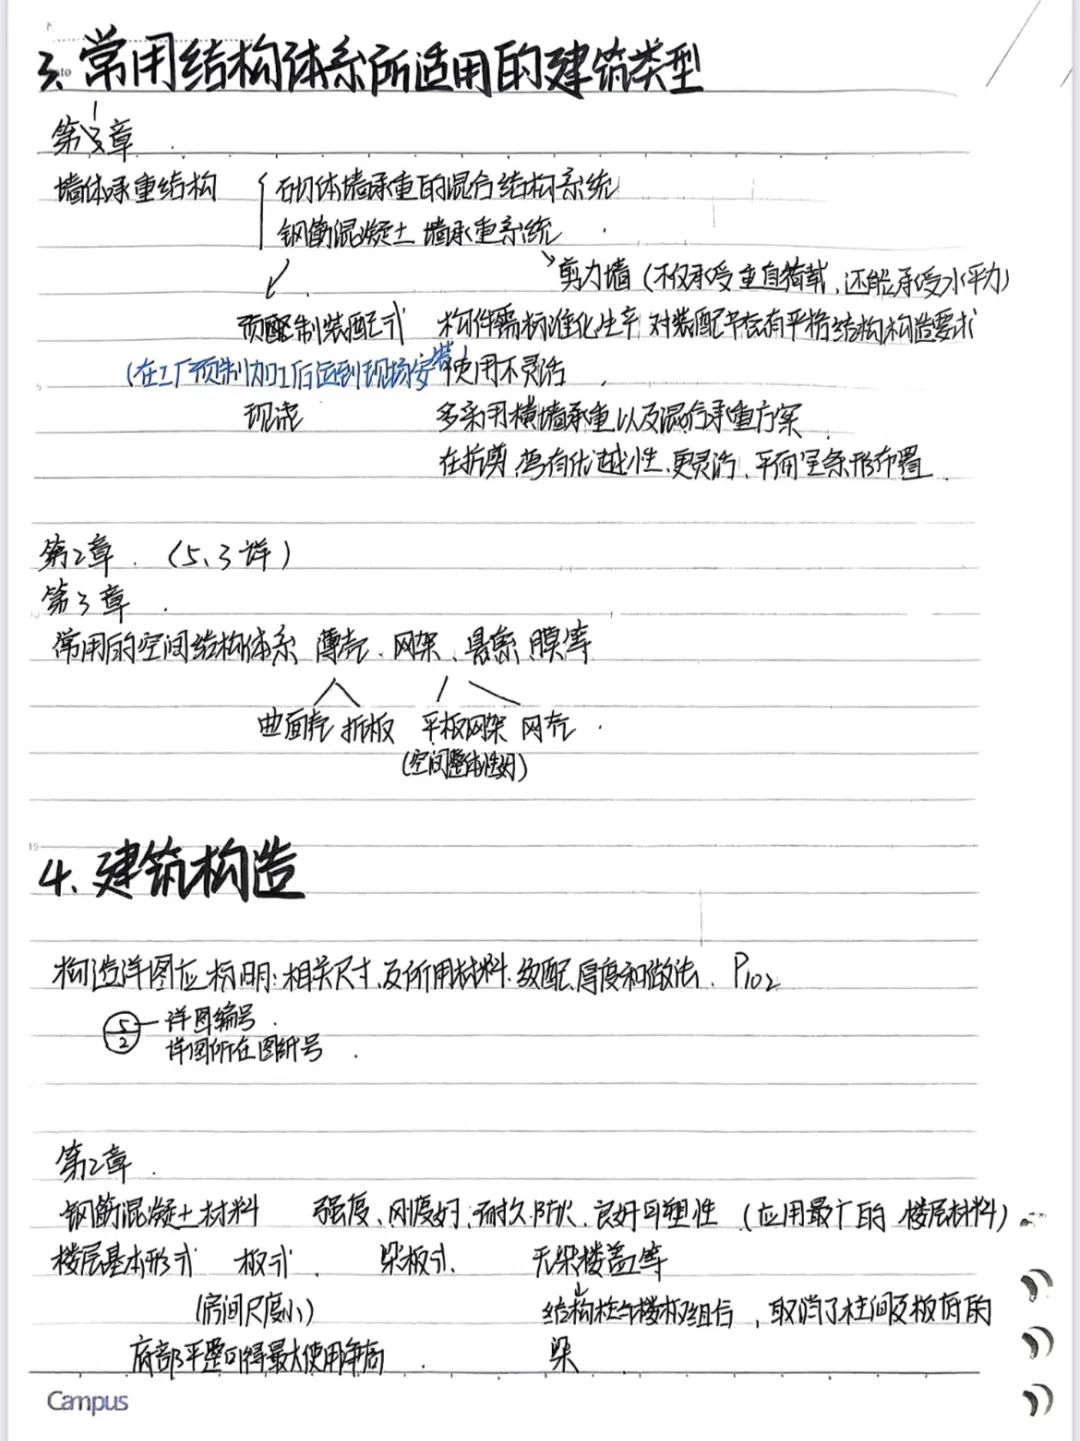 3. 常用结构体系所适用的建筑类型
第3章
墙体承重结构 { 砌体墙承重的混合结构系统
钢筋混凝土 墙承重系统
剪力墙 (不仅承受垂直荷载,还能承受水平力)
预制装配式 构件需标准化生产 对装配节点有严格结构构造要求
(在工厂预制加工后运到现场安装) 使用不灵活
现浇 多采用横墙承重以及混合承重方案
在抗剪、弯有优越性、更灵活、平面呈条形布置
第2章 (5.3详)
第3章
常用的空间结构体系 薄壳、网架、悬索、膜等
曲面壳 折板 平板网架 网壳
(空间整体性好)
4. 建筑构造
构造详图应标明:相关尺寸、及所用材料、级配、厚度和做法. P102
5 详图编号
2 详图所在图纸号
第2章
钢筋混凝土材料 强度、刚度好、耐久、防火、良好可塑性 (应用最广的 楼层材料)
楼层基本形式 板式、 梁板式、 无梁楼盖等
(房间尺度小) 结构柱与楼板组合,取消了柱间及板底的
底部平整可得最大使用净高 梁
Campus